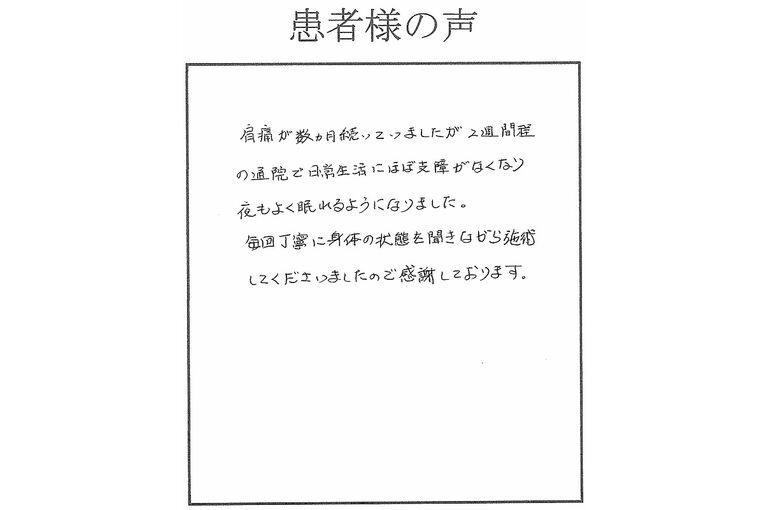 患者様の声
肩痛が数ヵ月続いていましたが2週間程
の通院で日常生活にほぼ支障がなくなり
夜もよく眠れるようになりました。
毎回丁寧に身体の状態を聞きながら施術
してくださいましたので感謝しております。